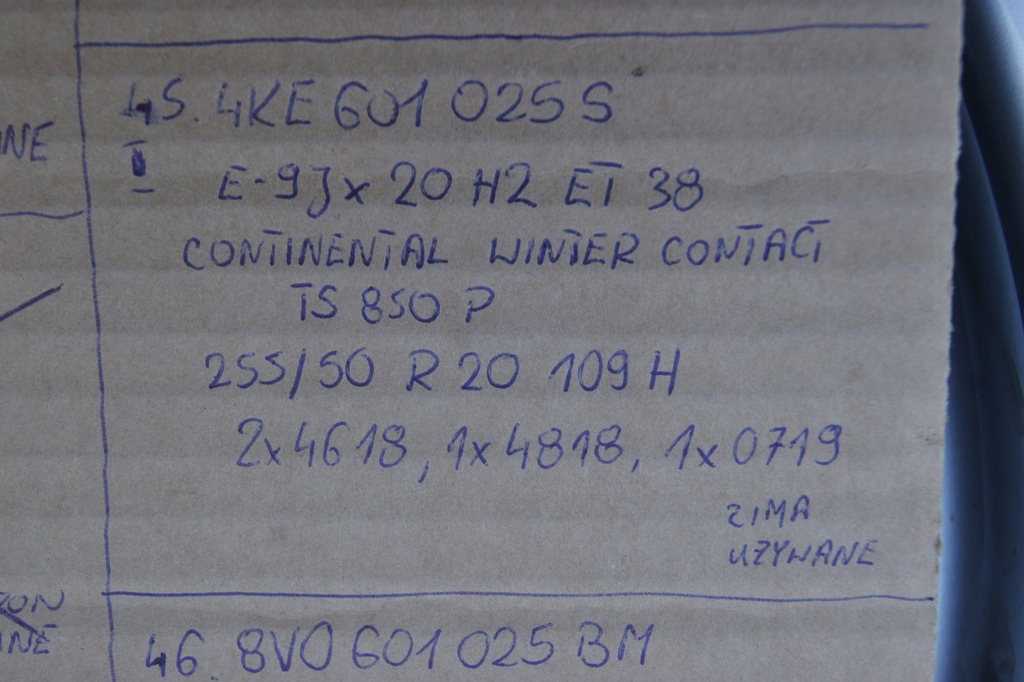 45. 4KE 601 025 S
I
E-9Jx 20 H2 ET 38
CONTINENTAL WINTER CONTACT
TS 850 P
255/50 R 20 109 H
2x4618, 1x4818, 1x0719
ZIMA
UŻYWANE
46. 8V0 601 025 BM